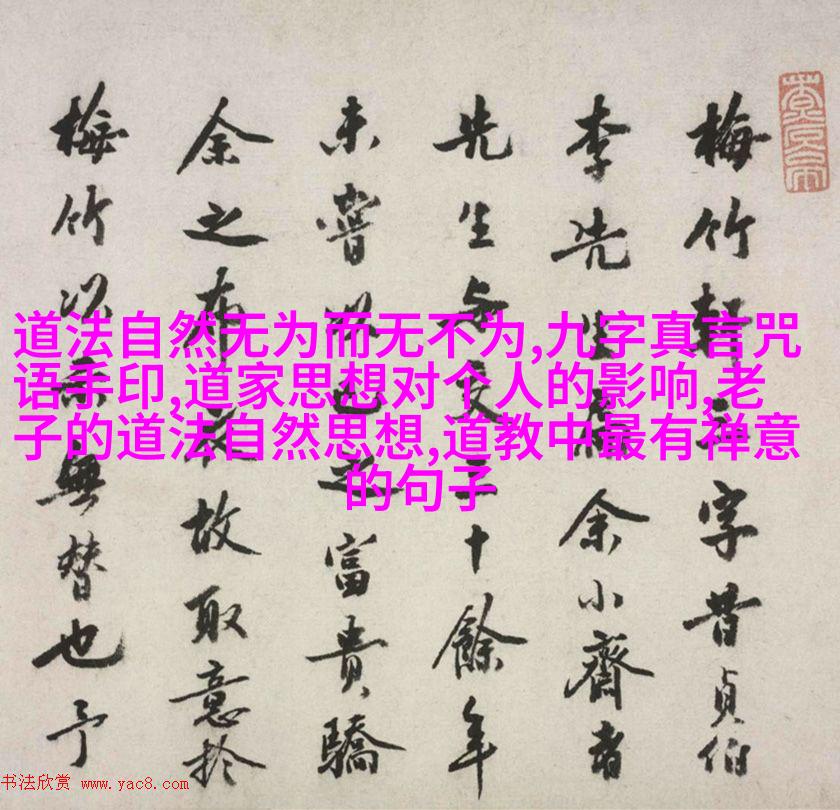 道法自然无为而无不为,九字真言咒
语手印,道家思想对个人的影响,老
子的道法自然思想,道教中最有禅意
的句子
梅竹軒字昔貞伯
李先生余小齋
先生与交三十餘年
未嘗以富貴驕
余之布故取意於
梅竹以示無替也予
书法欣赏 www.yac8.com